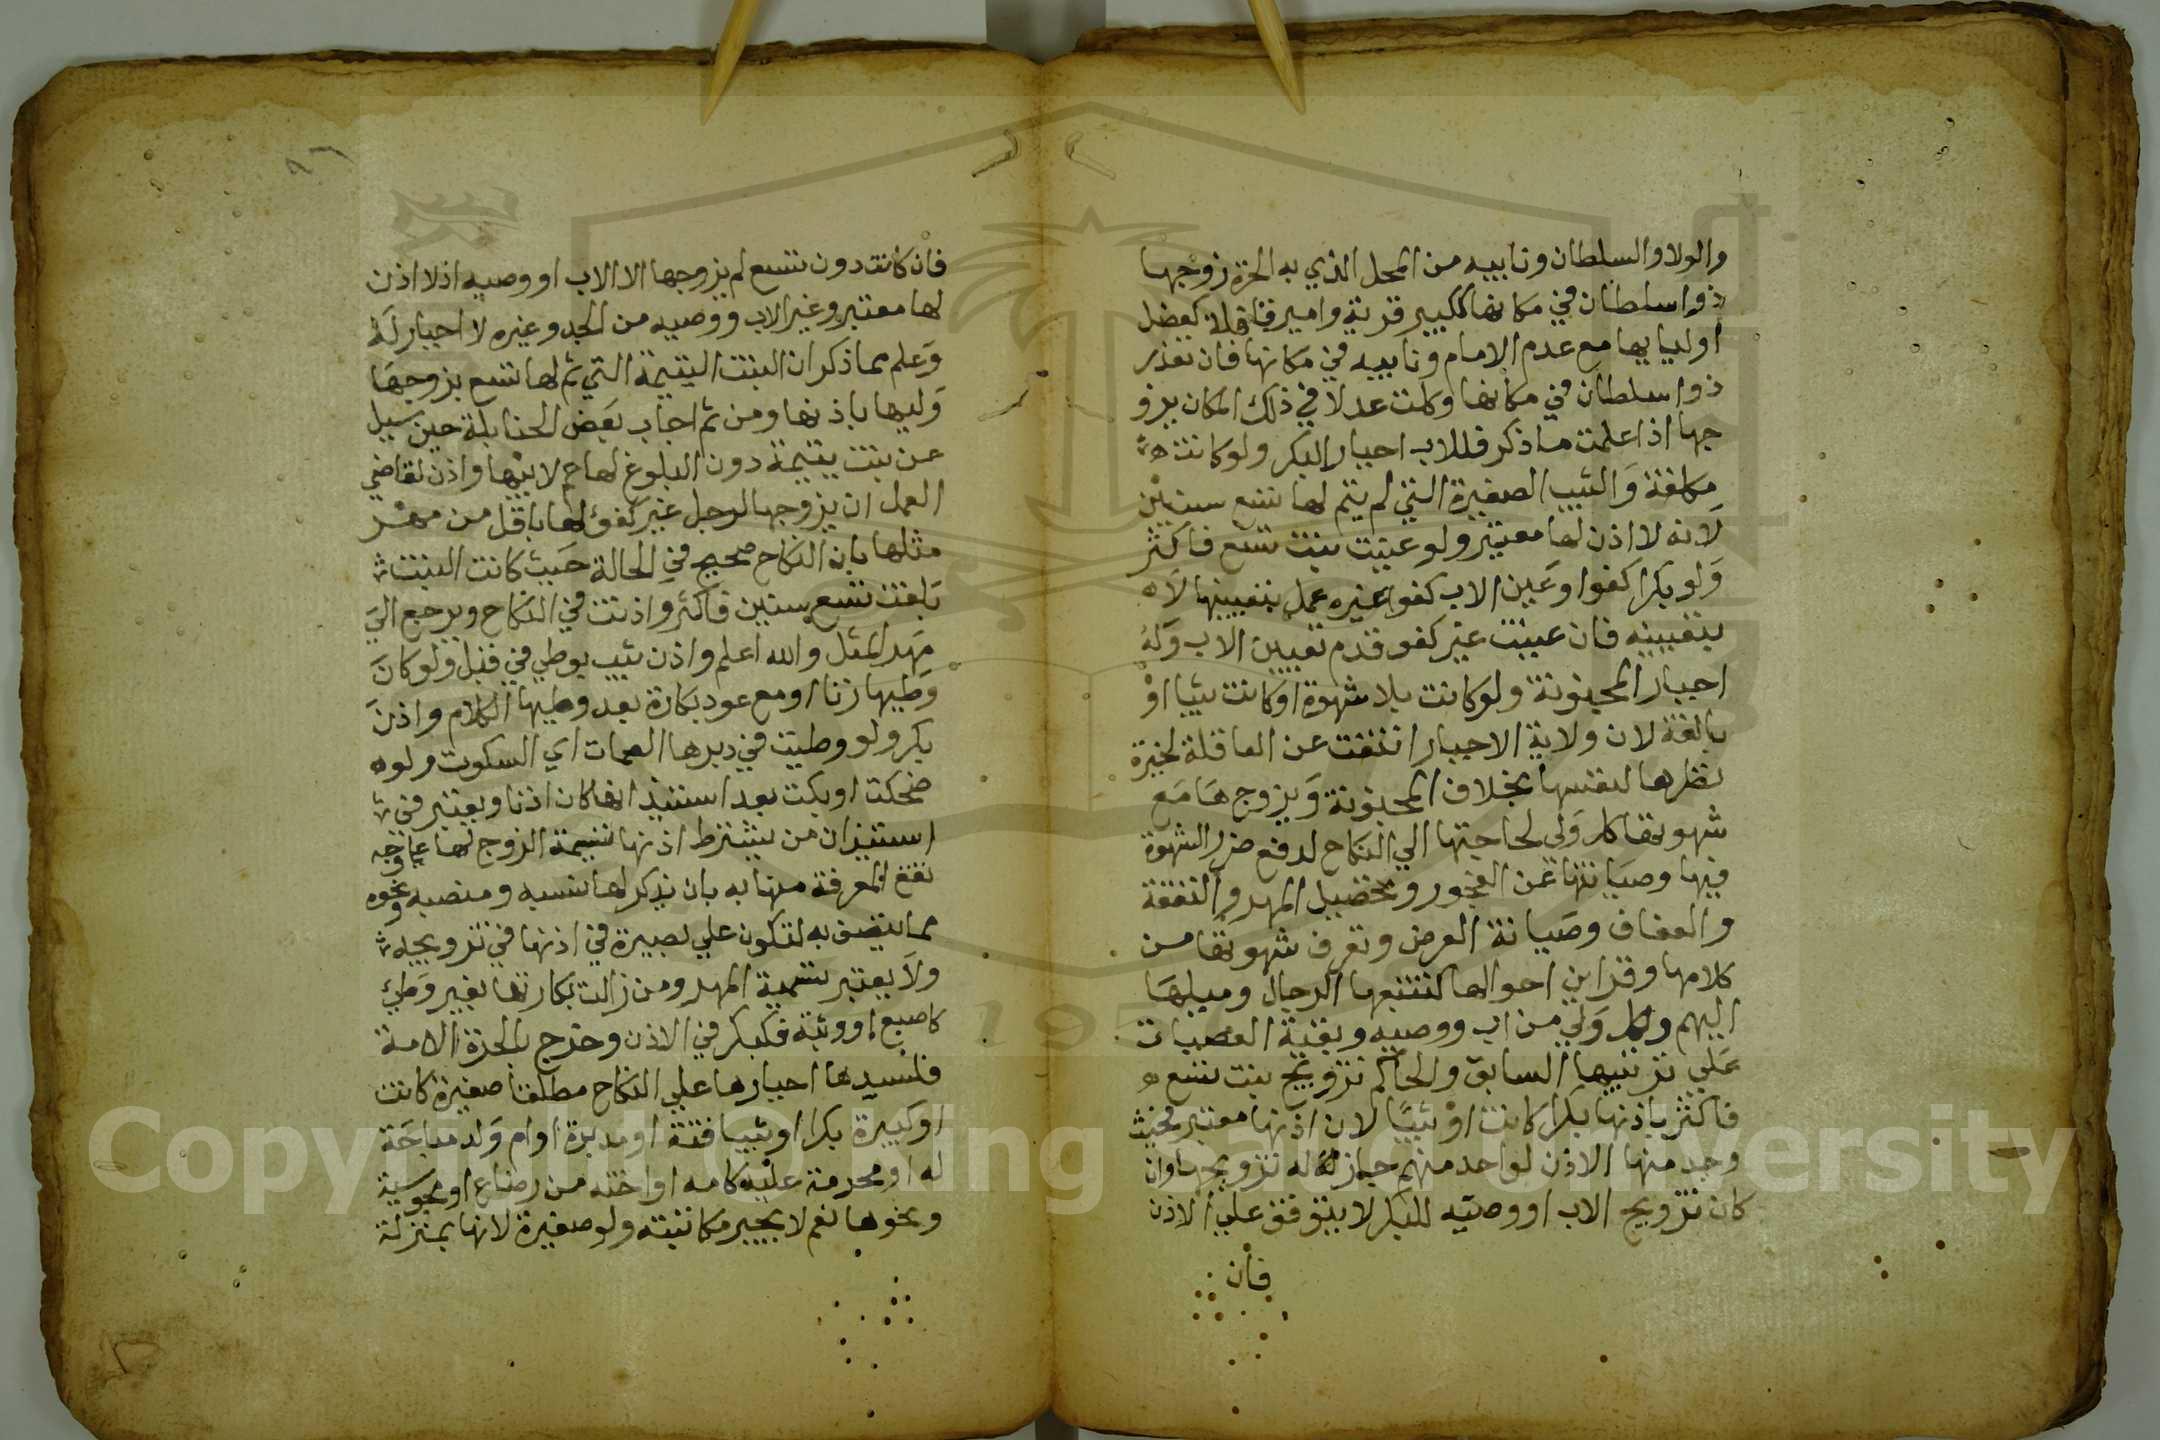 والولاو السلطان ونايبيه من المحل الذي به الحرة زوجها
ذوا سلطان في مكانها ككبير قرية وامير قافلة كعضل
اوليايها مع عدم الامام ونايبيه في مكانها فان تعذر
ذوا سلطان في مكانها وكلت عدلا في ذلك المكان يزو
جها اذا علمت ما ذكر فللاب اجبار البكر ولو كانت
مكلفة والثيب الصغيرة التي لم يتم لها تسع سنين
لانه لا اذن لها معتبر ولو عينت بنت تسع فاكثر
ولو بكرا كفوا وعين الاب كفوا غيره عمل بتعيينها لا
بتعيينه فان عينت غير كفو قدم تعيين الاب وله
اجبار المجنونة ولو كانت بلا شهوة او كانت ثيبا او
بالغة لان ولاية الاجبار انتفت عن العاقلة لخيرة
نظرها لنفسها بخلاف المجنونة ويزوجها مع
شهوتها كل ولي لحاجتها الي النكاح لدفع ضرر الشهوة
فيها وصيانتها عن الفجور وتحصيل المهر والنفقة
والعفاف وصيانة العرض وتعرف شهوتها من
كلامها وقراين احوالها كتتبعها الرجال وميلها
اليهم ولكل ولي من اب ووصيه وبقية العصبات
علي ترتيبها السابق والحاكم تزويج بنت تسع
فاكثر باذنها بكرا كانت او ثيبا لان اذنها معتبر فحيث
وجد منها الاذن لواحد منهم جاز له تزويجها وان
كان تزويج الاب او وصيه للبكر لا يتوقف علي الاذن
فان
٩٦
فان كانت دون تسع لم يزوجها الا الاب او وصيه اذ لا اذن
لها معتبر وغير الاب ووصيه من الجد وغيره لا اجبار له
وعلم مما ذكر ان البنت اليتيمة التي تم لها تسع يزوجها
وليها باذنها ومن ثم اجاب بعض الحنابلة حين سيل
عن بنت يتيمة دون البلوغ لها اخ لابيها واذن لقاضي
العمل ان يزوجها لرجل غير كفؤ لها باقل من مهر
مثلها بان النكاح صحيح في الحالة حيث كانت البنت
بلغت تسع سنين فاكثر واذنت في النكاح ويرجع الي
مهر المثل والله اعلم واذن ثيب بوطي في قبل ولو كان
وطيها زنا او مع عود بكارة بعد وطيها الكلام واذن
بكر ولو وطيت في دبرها الصمات اي السكوت ولو
ضحكت او بكت بعد استيذانها كان اذنا ويعتبر في
استيذان من يشترط اذنها تسمية الزوج لها علي وجه
تقع المعرفة منها به بان يذكر لها نسبه ومنصبه ونحوه
مما يتصف به لتكون علي بصيرة في اذنها في تزويجه
ولا يعتبر تسمية المهر ومن زالت بكارتها بغير وطئ
كاصبع او وثبة فكبكر في الاذن وخرج بالحرة الامة
فلسيدها اجبارها علي النكاح مطلقا صغيرة كانت
او كبيرة بكرا او ثيبا قنة او مدبرة او ام ولد مباحة
له او محرمة عليه كامه او اخته من رضاع او مجوسية
ونحوها نعم لا يجبر مكاتبته ولو صغيرة لانها بمنزلة
Copyright © King Saud University